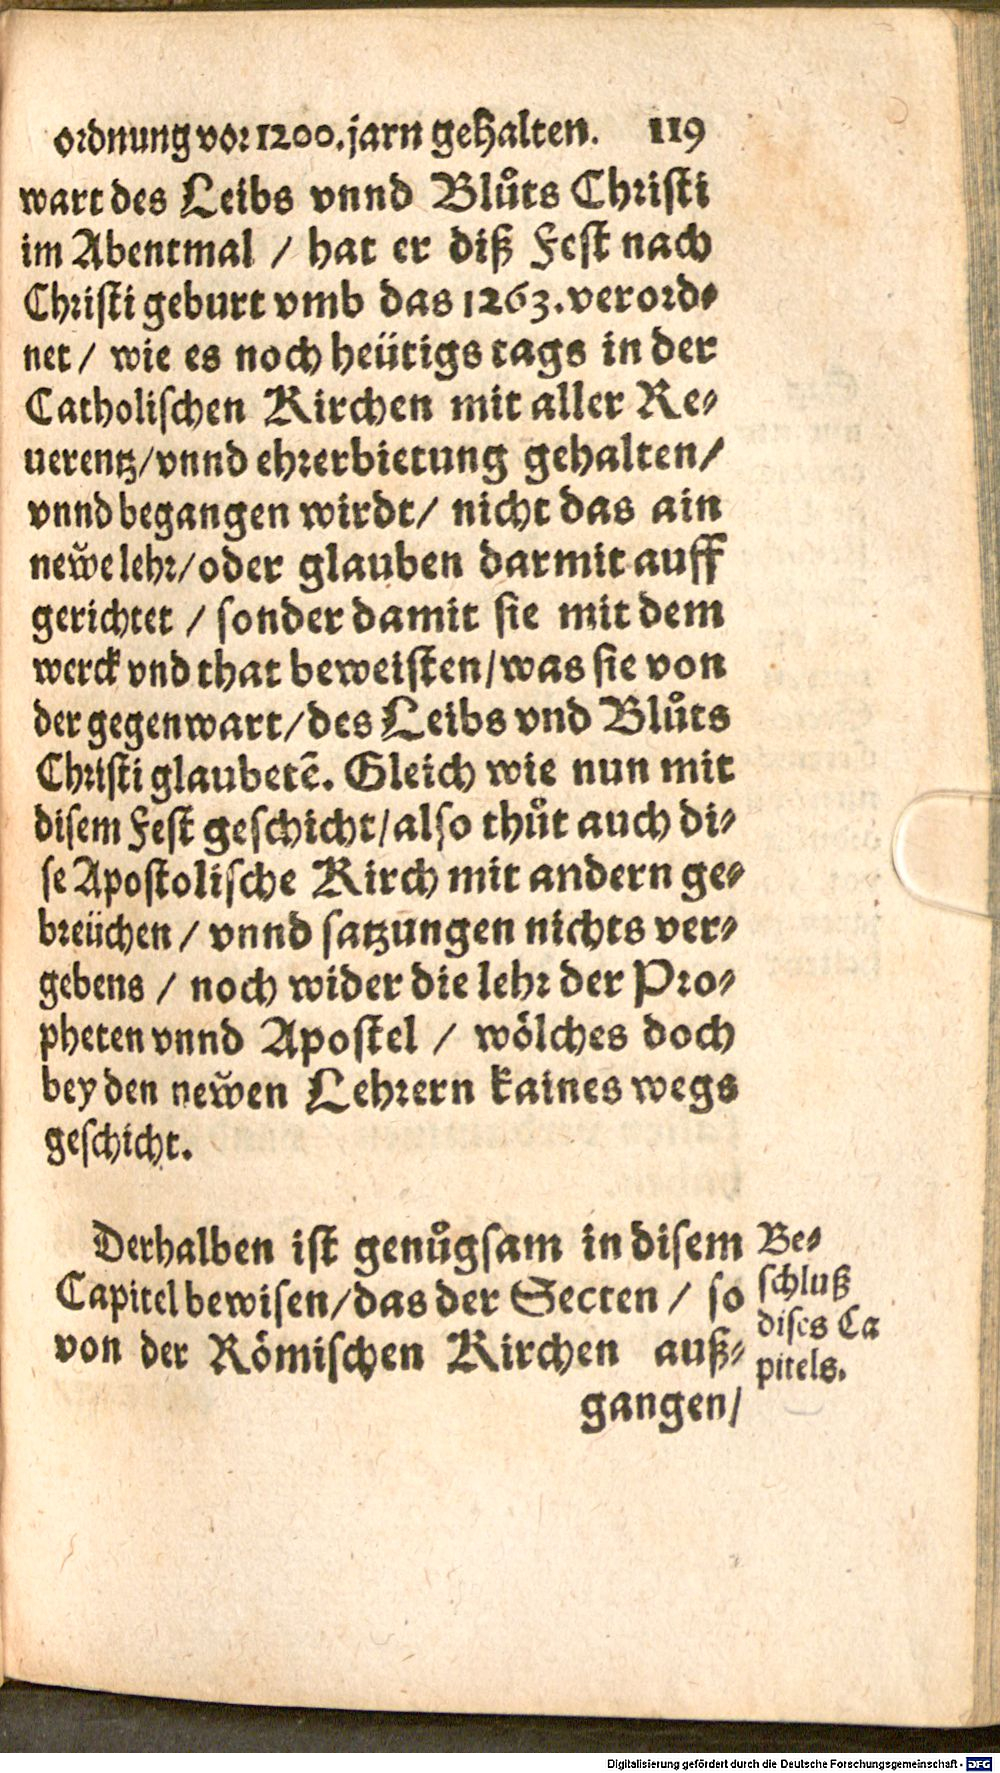 ordnung vor 1200. jarn gehalten. 119
wart des Leibs vnnd Blůts Christi
im Abentmal / hat er diß Fest nach
Christi geburt vmb das 1263. verord-
net / wie es noch heütigs tags in der
Catholischen Kirchen mit aller Re-
uerentz / vnnd ehrerbietung gehalten /
vnnd begangen wirdt / nicht das ain
new̆e lehr / oder glauben darmit auff
gerichtet / sonder damit sie mit dem
werck vnd that beweisten / was sie von
der gegenwart / des Leibs vnd Blůts
Christi glaubetẽ. Gleich wie nun mit
disem Fest geschicht / also thůt auch di-
se Apostolische Kirch mit andern ge-
breüchen / vnnd satzungen nichts ver-
gebens / noch wider die lehr der Pro-
pheten vnnd Apostel / wölches doch
bey den new̆en Lehrern kaines wegs
geschicht.
Derhalben ist genůgsam in disem
Capitel bewisen / das der Secten / so
von der Römischen Kirchen auß-
gangen /
Be-
schluß
dises Ca
pitels.
Digitalisierung gefördert durch die Deutsche Forschungsgemeinschaft - DFG